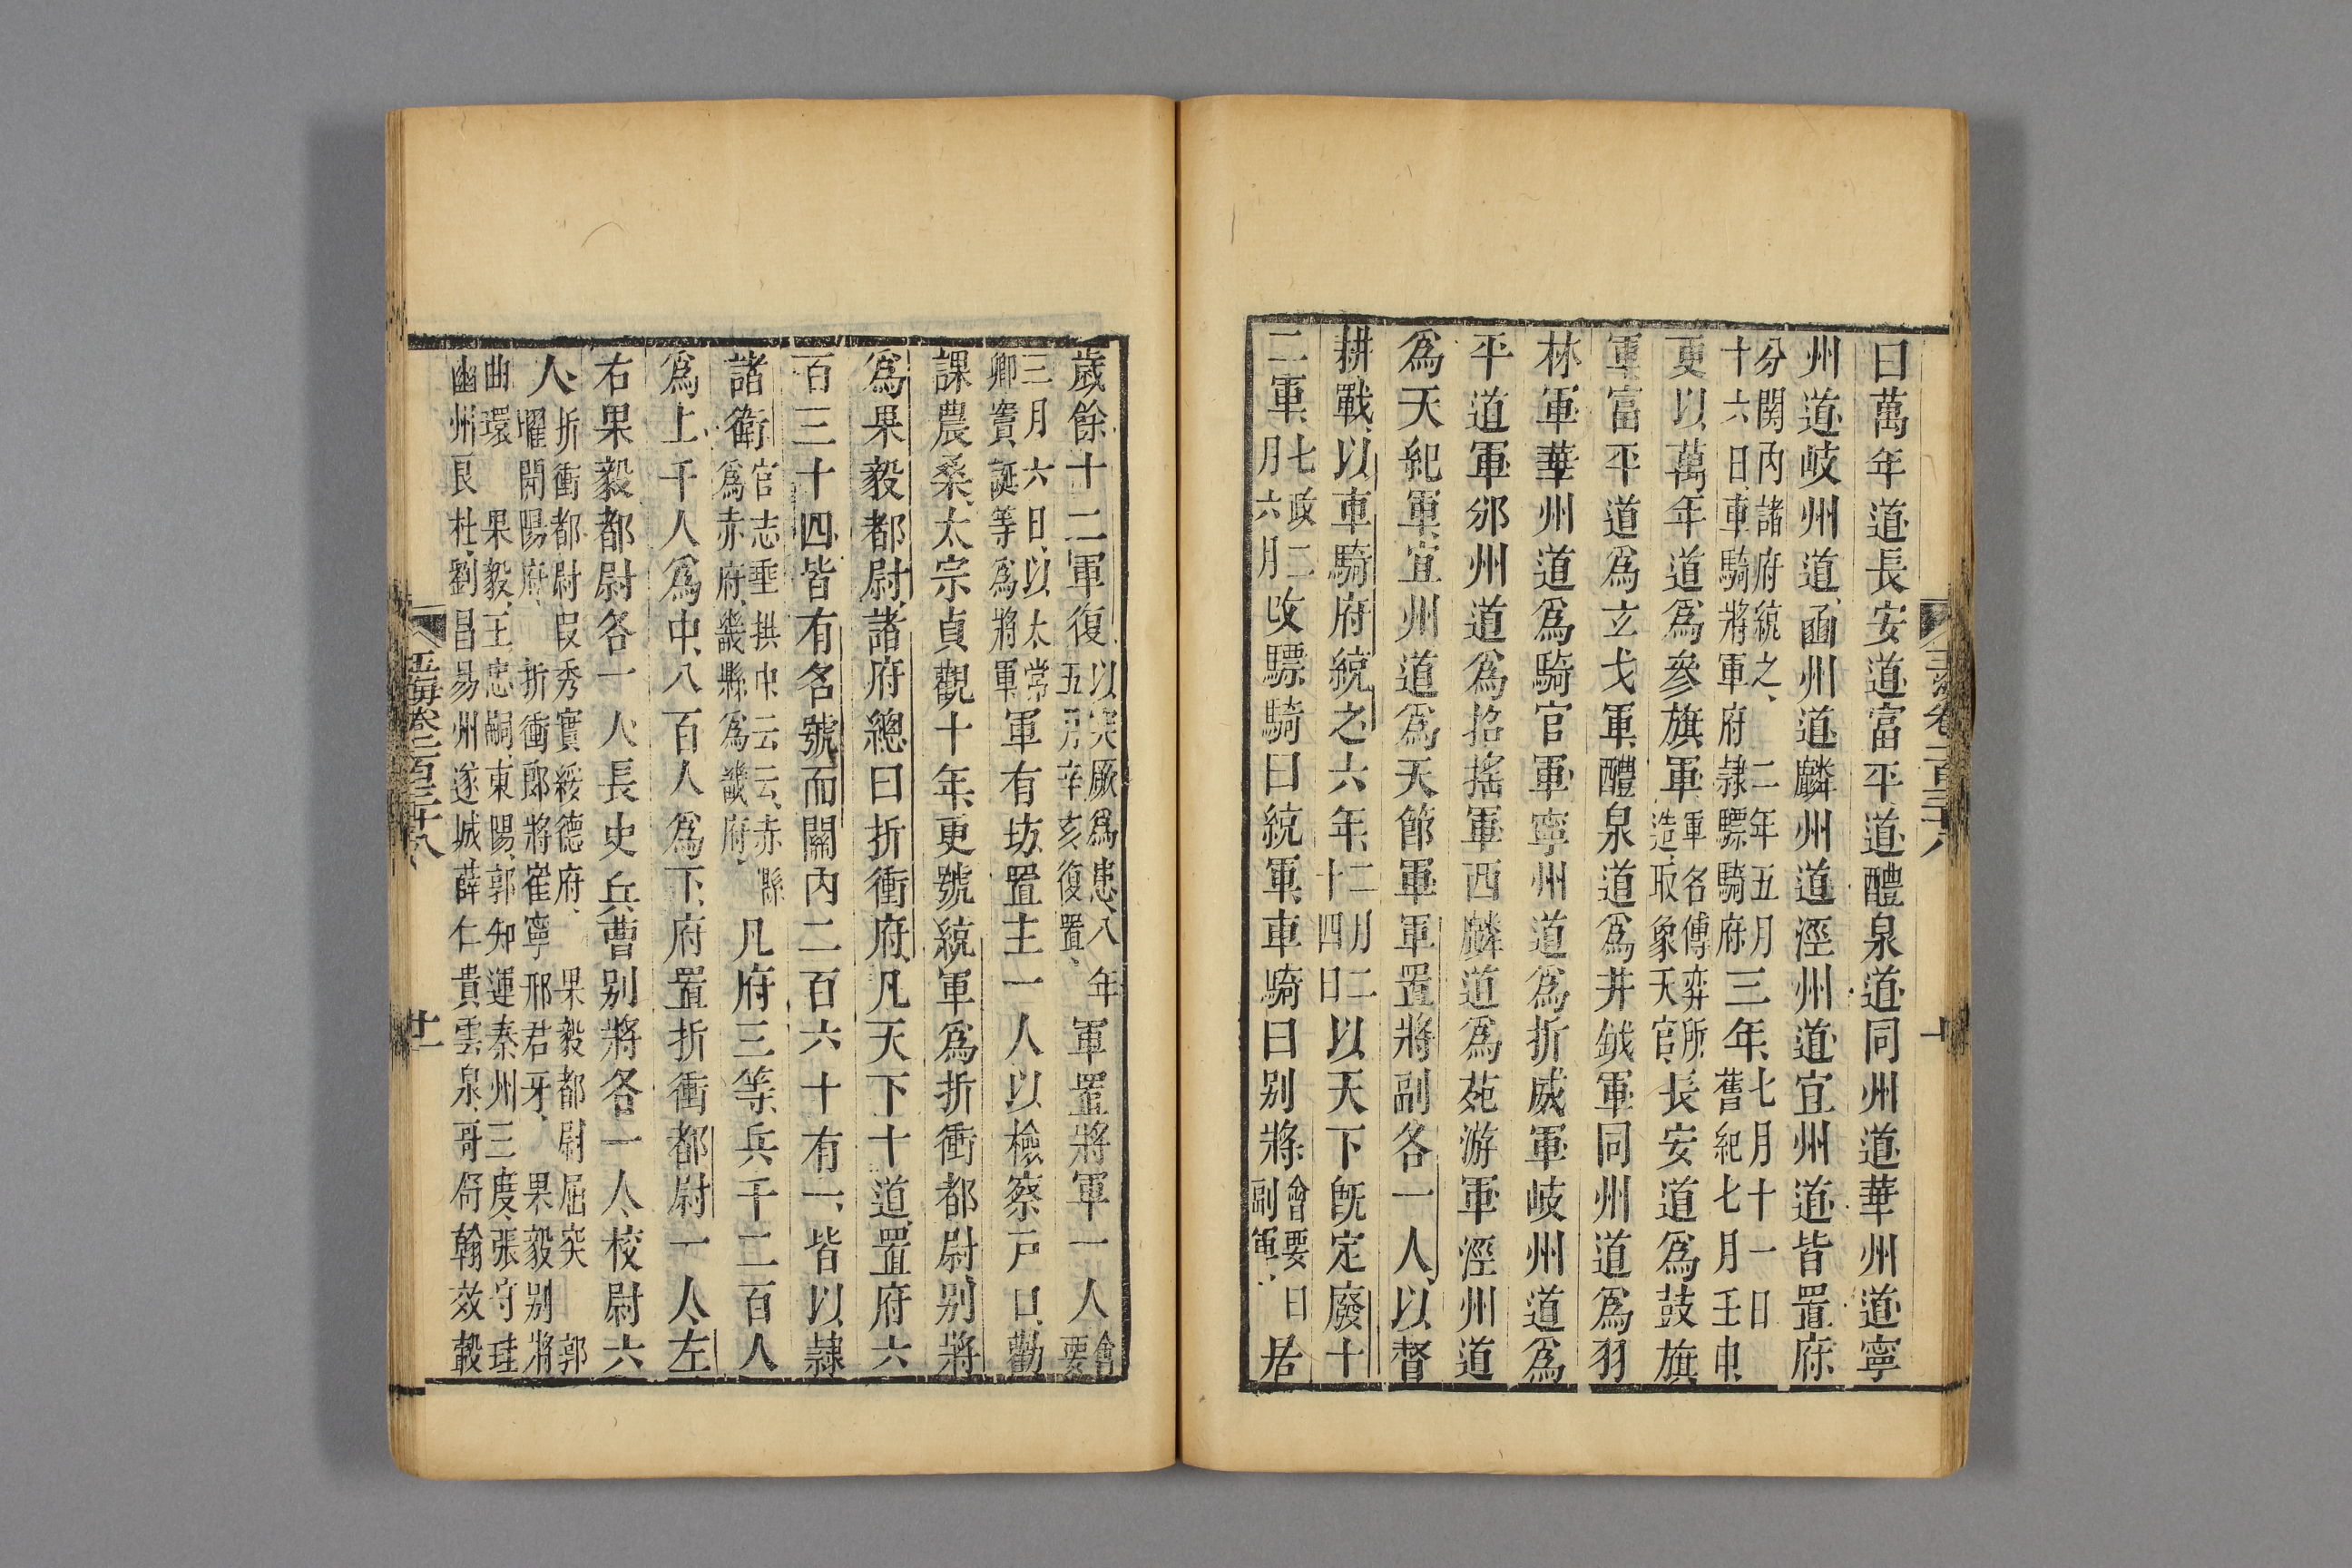 曰萬年道長安道富平道醴泉道同州道華州道寧
州道岐州道豳州道麟州道涇州道宜州道皆置府
分關内諸府統之二年五月七月十一日
十六日車騎將軍府隷驃騎府三年舊紀七月壬申
更以萬年道爲參旗軍軍名傅弈所造取象天官長安道爲鼓旗
軍富平道爲玄戈軍醴泉道爲井鉞軍同州道爲羽
林軍華州道爲騎官軍寧州道爲折威軍岐州道爲
平道軍豳州道爲招搖軍西麟道爲苑游軍涇州道
爲天紀軍宜州道爲天節軍軍置將副各一人以督
耕戰以車騎府統之六年二月二十四日以天下既定廢十
二軍七政二月六月改驃騎曰統軍車騎曰别將會要曰副軍居
歲餘十二軍復以突厥爲患八年五月辛亥復置軍置將軍一人會要
三月六日以太常
卿竇誕等爲將軍軍有坊置主一人以檢察戸口勸
課農桑太宗貞觀十年更號統軍爲折衝都尉别將
爲果毅都尉諸府總曰折衝府凡天下十道置府六
百三十四皆有名號而關内二百六十有一皆以隷
諸衛官志垂拱中云云赤縣爲赤府畿縣爲畿府凡府三等兵千二百人
爲上千人爲中八百人爲下府置折衝都尉一人左
右果毅都尉各一人長史兵曹别將各一人校尉六
人折衝都尉叚秀實綏德府果毅都尉屈突郭
曜開陽府折衝郎將崔寧邢君牙果毅别將
曲環果毅王忠嗣東陽郭知運秦州三度張守珪
幽州良杜劉昌易州遂城薛仁貴雲泉哥舒翰效轂
玉海卷一百三十八
十
玉海卷一百三十八
十一